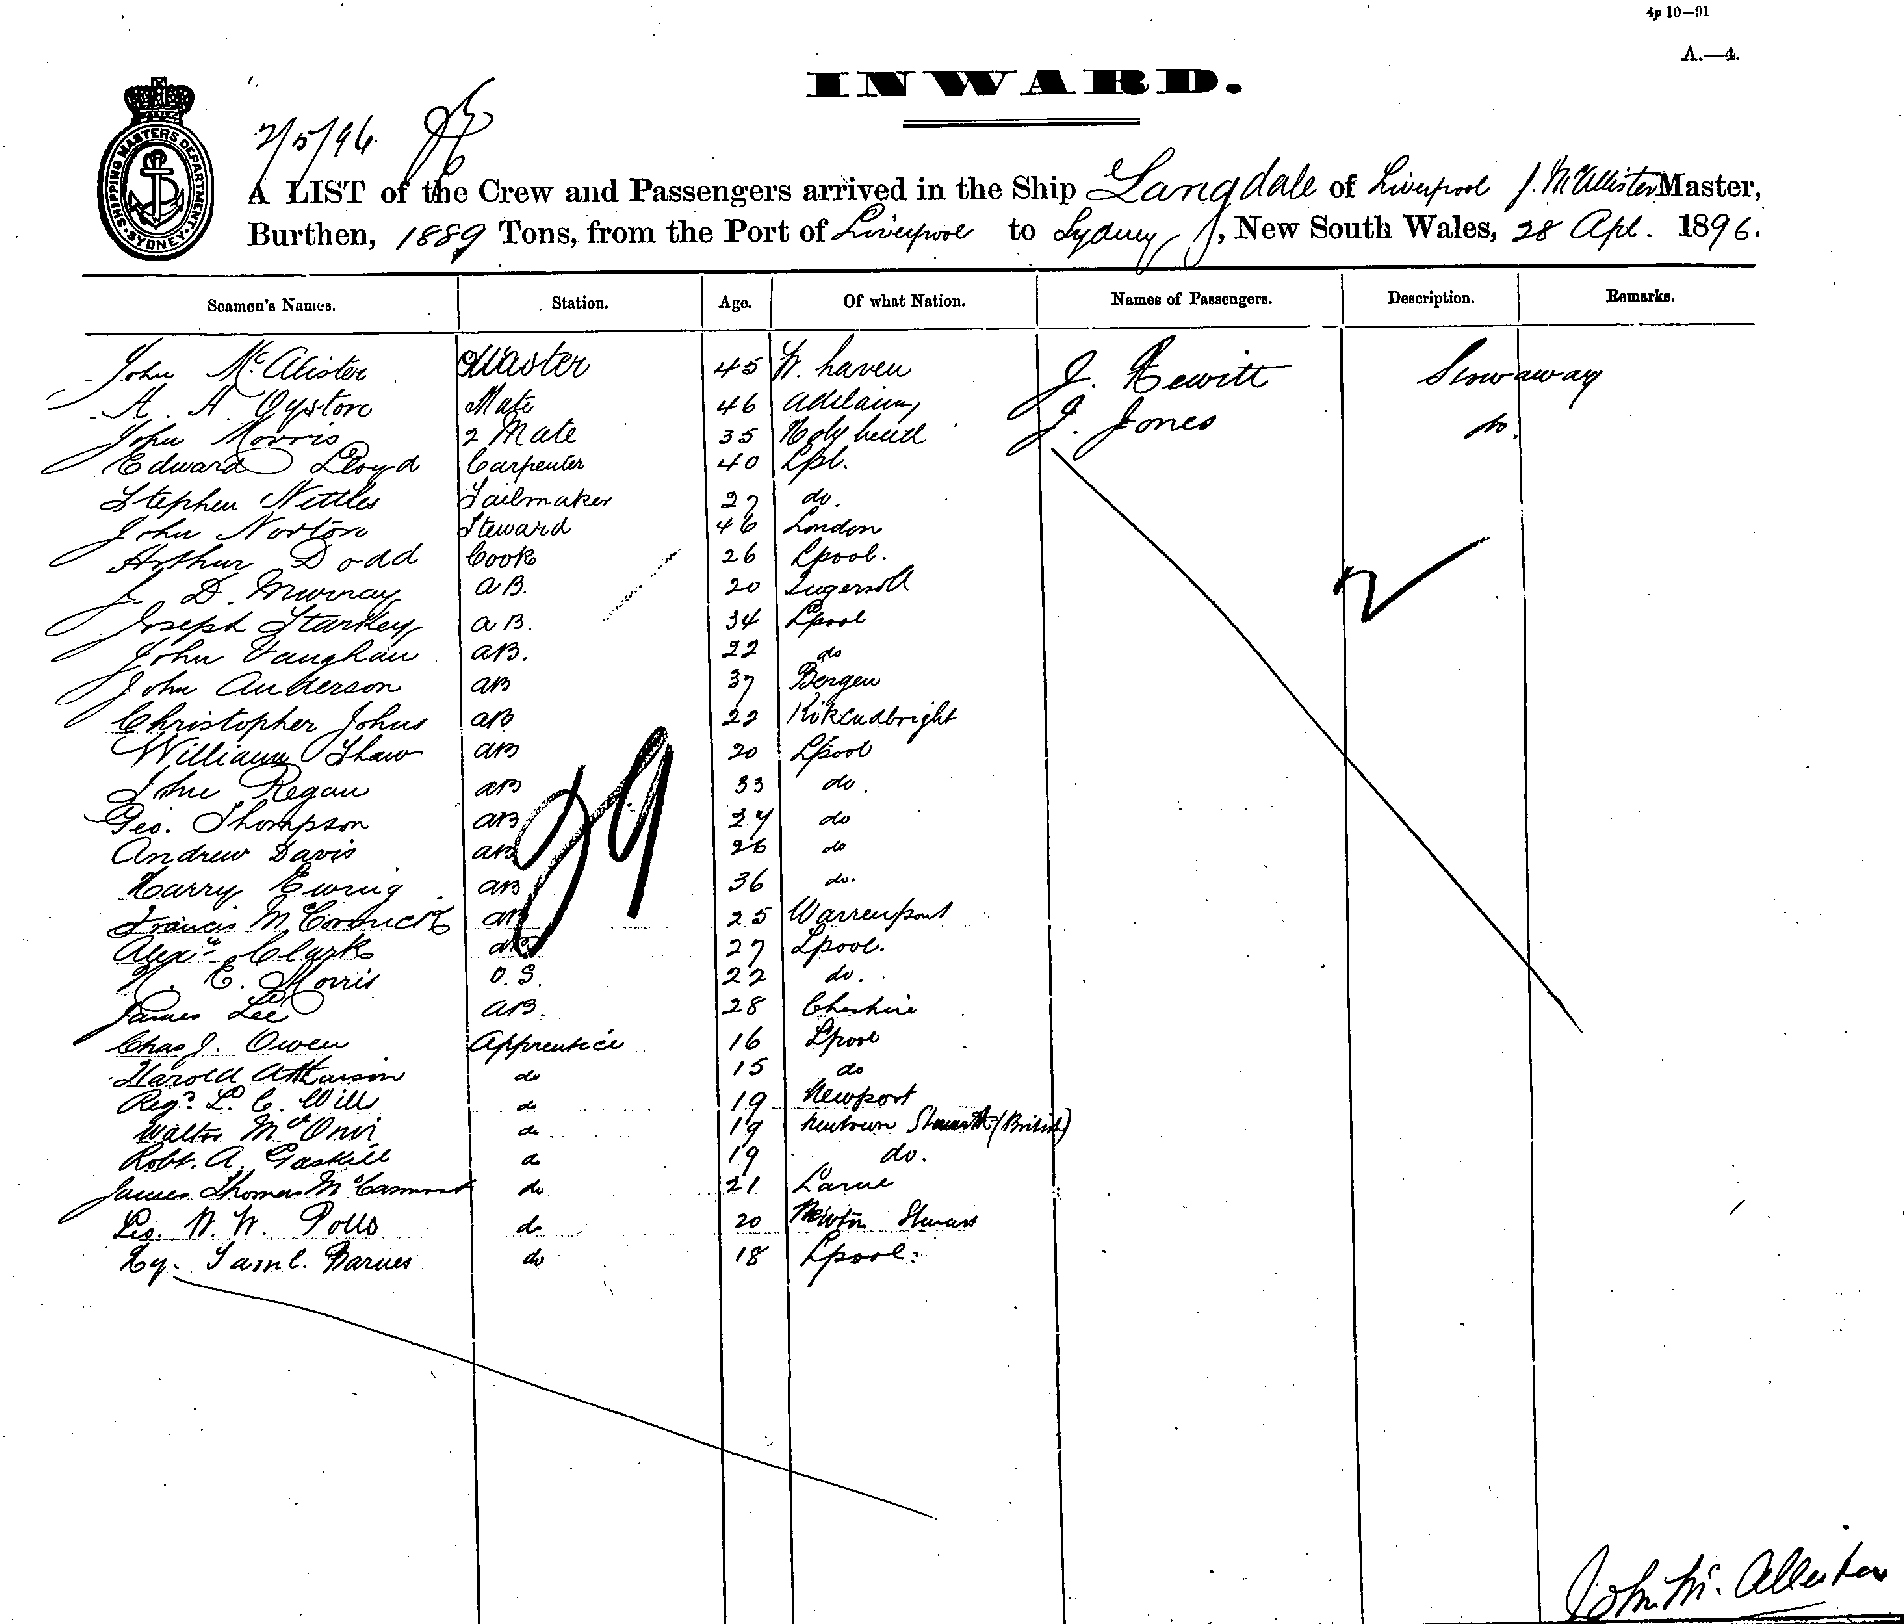 4p 10—91
A.—4.
INWARD.
SHIPPING MASTERS DEPARTMENT
SYDNEY
2/5/96
A LIST of the Crew and Passengers arrived in the Ship Langdale of Liverpool J. McAllister Master,
Burthen, 1889 Tons, from the Port of Liverpool to Sydney, New South Wales, 28 Apl. 1896.
Seamen's Names. Station. Age. Of what Nation. Names of Passengers. Description. Remarks.
John McAlister Master 45 W. haven J. Hewitt Stowaway
A. A. Oystone Mate 46 J. Jones do.
John Morris 2 Mate 35 Holyhead
Edward Lloyd Carpenter 40 Lpl.
Stephen Nettles Sailmaker 27 do.
John Norton Steward 46 London
Arthur Dodd Cook 26 Lpool.
J. D. Murray AB. 20 Ingersoll
Joseph Starkey AB. 34 Lpool
John Vaughan AB. 22 do
John Anderson AB 37 Bergen
Christopher Johns AB 22 Kirkcudbright
William Shaw AB 20 Lpool
John Regan AB 33 do.
Geo. Thompson AB 24 do
Andrew Davis AB 26 do
Harry Ewing AB 36 do.
Francis McCormick AB 25 Warrenpoint
Alexr Clark AB 27 Lpool.
E. Morris O.S. 22 do.
James Lee AB. 28 Cheshire
Chas J. Owen Apprentice 16 Lpool
Harold Atkinson do 15 do
Regd. L. C. Will do 19 Newport
Walter do 19 Newtown Stewart (British)
Robt. A. Gaskill do 19 do.
James Thomas McCammont do 21 Larne
Geo. W. W. Potts do 20 Newtn Stewart
Hy. Saml. Barnes do 18 Lpool.
29
2
John McAllister